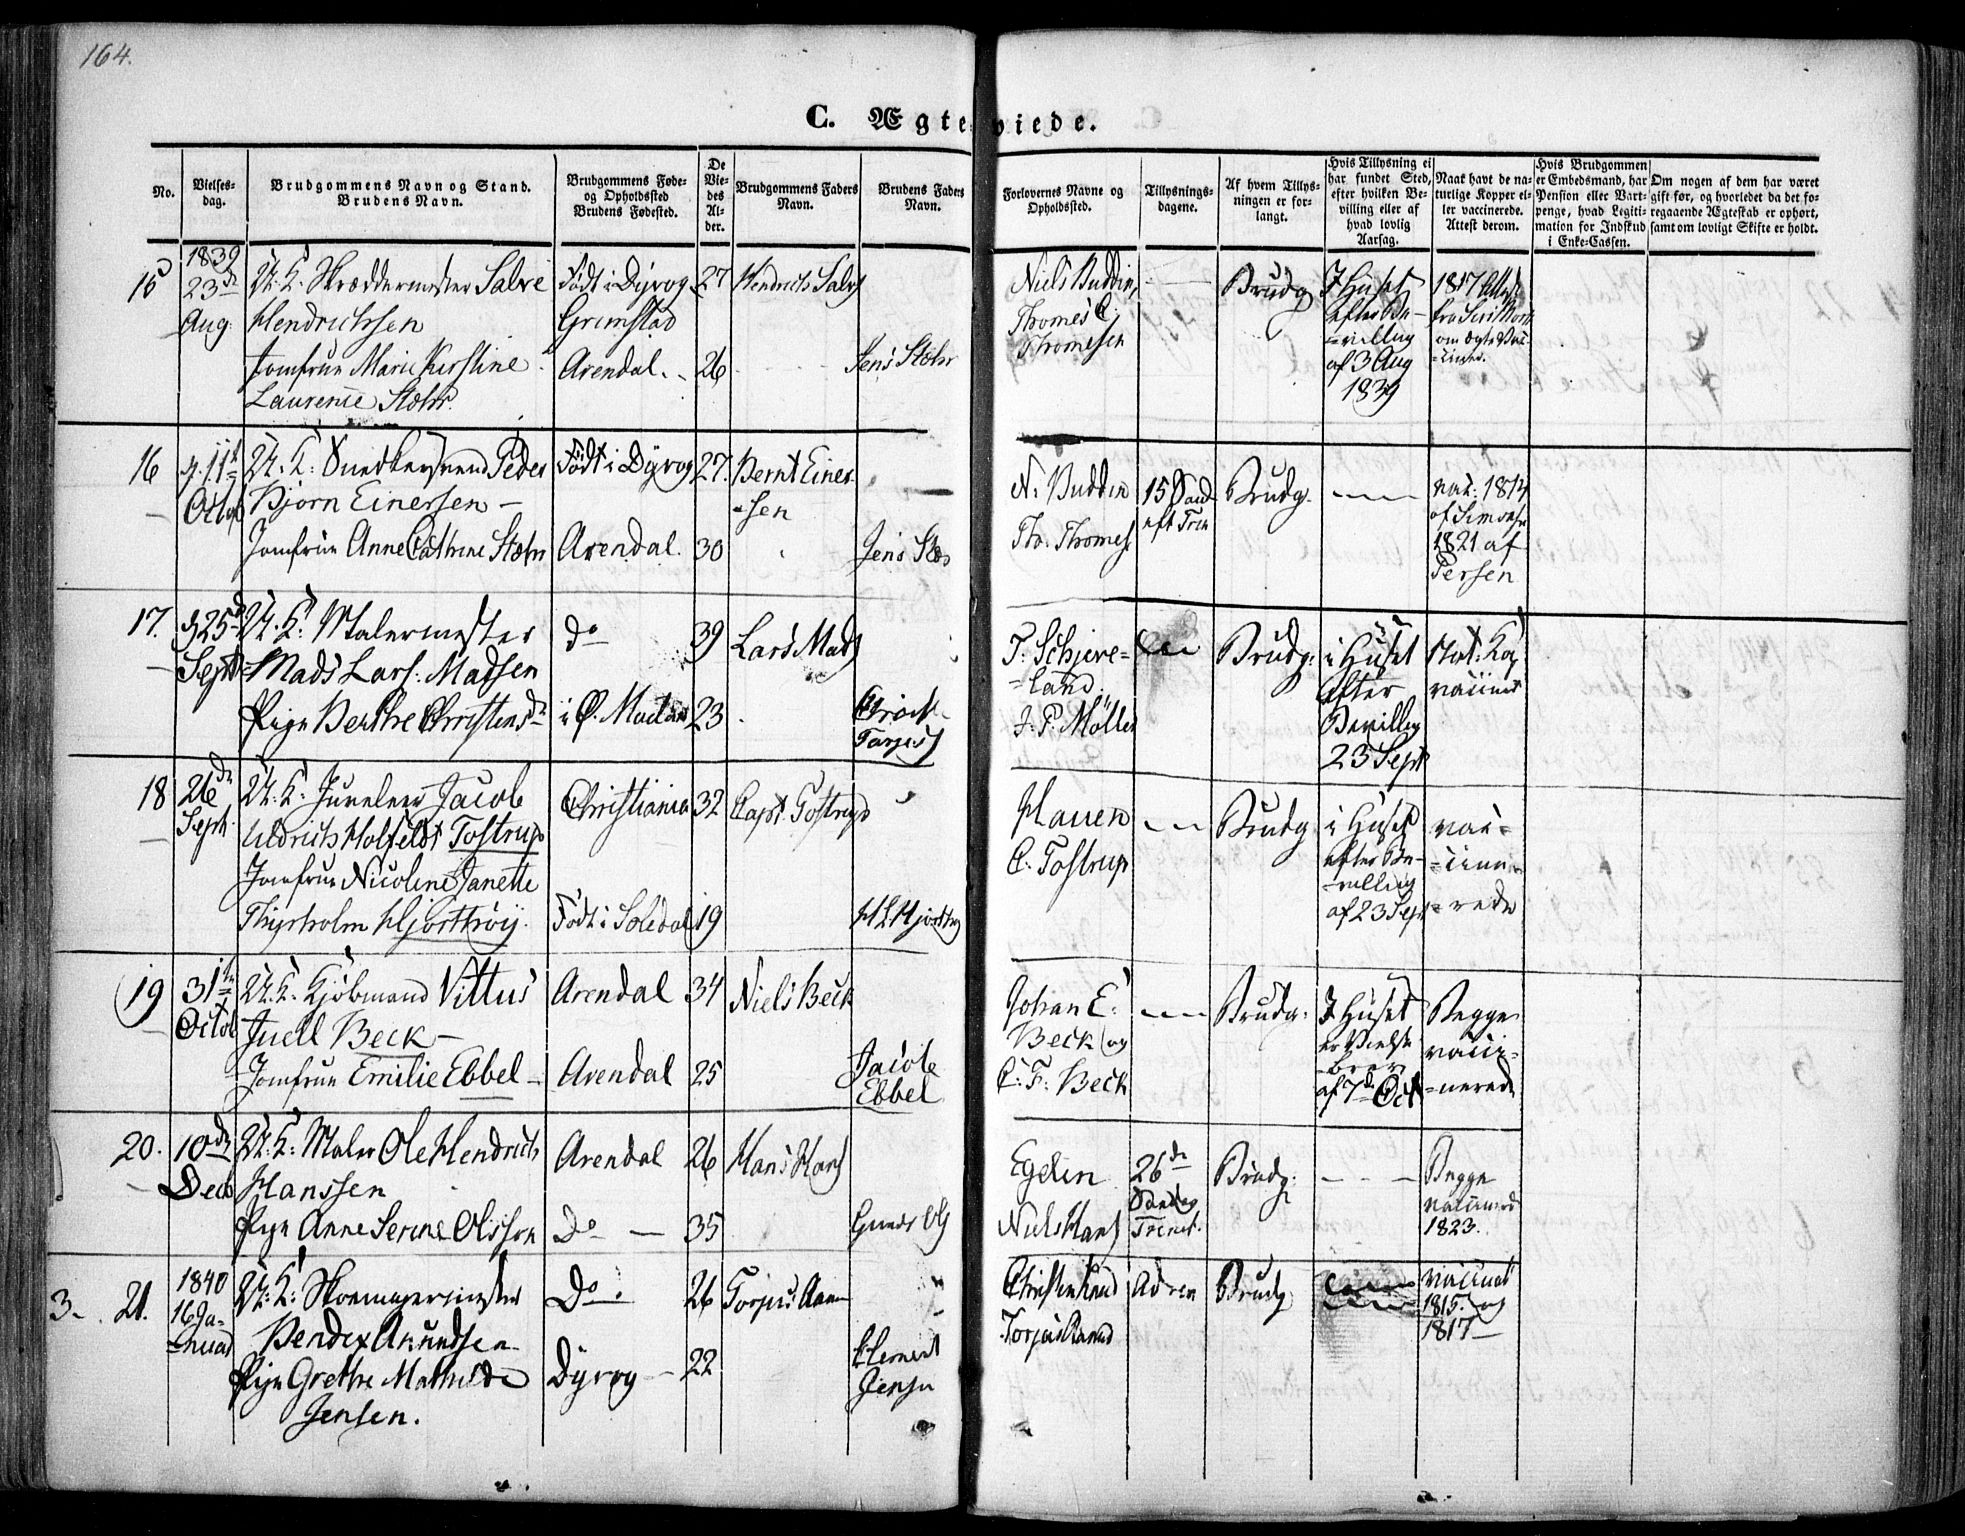 164.
C. Ægteviede.
No.
Vielses-
dag.
Brudgommens Navn og Stand.
Brudens Navn.
Brudgommens Føde-
og Opholdssted
Brudens Fødested.
De
Vie-
des
Al-
der.
Brudgommens Faders
Navn.
Brudens Faders
Navn.
Forlovernes Navne og
Opholdssted.
Tillysnings-
dagene.
Af hvem Tillys-
ningen er for-
langt.
Hvis Tillysning ei
har fundet Sted,
efter hvilken Be-
villing eller af
hvad lovlig
Aarsag.
Naar havt de na-
turlige Kopper el-
ler vaccinerede.
Attest derom.
Hvis Brudgommen
er Embedsmand, har
Pension eller Vart-
penge, hvad Legiti-
mation for Indskud
i Enke-Cassen.
Om nogen af dem har været
gift før, og hvorledet da det fo-
regaaende Ægteskab er ophørt,
samt om lovligt Skifte er holdt.
15
1839
23de
Aug.
U: K: Skræddermester Salve
Hendrichsen
Jomfrue Marie Kirstine
Laurence Stæhr.
Født i Dyvog
Grimstad
Arendal.
27
26
Hendrich Salv
Jens Stæhr
Niels Buddin,
Thomes C.
Thomesen
Brudg
I Huset
efter Be-
villing
af 3 Aug
1839
1817 Attest
16
11t
Octob
U. K: Snedkersvend Peder
Bjørn Einersen
Jomfrue Anne Cathrine Stæhr
Født i Dyvog
Arendal.
27.
30
Bernt Einer
sen
Jens Stæ
N. Buddin
Th. Thomes
15 Sønd
eft Trin
Brudg.
vac: 1814
1821 af
Persen
17.
25de
Sept
U. K: Malermester
Mads Lars. Madsen
Pige Berthe Christensd
Do
39
23
Lars Mads
Torjes
T. Schjeve-
land.
J. P. Møller
Brudg:
i Huset
efter
Bevilling
23 Sept
Nat: Kop
vaccinert
18
26de
Sept.
U. K: Juveleer Jacob
Uldrich Holfeldt Tostrup
Jomfrue Nicoline Janette
Thyrholm Hjorthøy.
Christiania
Født i Soledal
32
19
Capt. Tostrup
H L Hjorthøy
Hauen
C. Tostrup
Brudg
i Huset
efter Be-
villing
af 23 Sept
vac-
cine-
rede
19
31te
Octob
U. K. Kjøbmand Vittus
Juell Beck
Jomfrue Emilie Ebbel
Arendal
Arendal
34
25
Niels Beck
Jacob
Ebbel
Johan E:
Beck og
C: F: Beck
Brudg.
I Huset
af 7de Oct
Begge
vacci-
nerede
20.
10de
Decb
U: K: Maler Ole Hendrich
Hanssen
Pige Anne Serine Olsson
Arendal
Do
26
35
Hans Hans
Egelin
Niels Hans
26de
Søndag
Trinit.
Brudg.
Begge
vaccinered
1823.
3
21.
1840
16 Ja-
nuar
U: K: Skomagermester
Bendix Anundsen
Pige Grethe Mathilde
Jensen.
Do
Dyvog
26
22
Clement
Jensen
Brudg
vaccinert
1815. og
1817